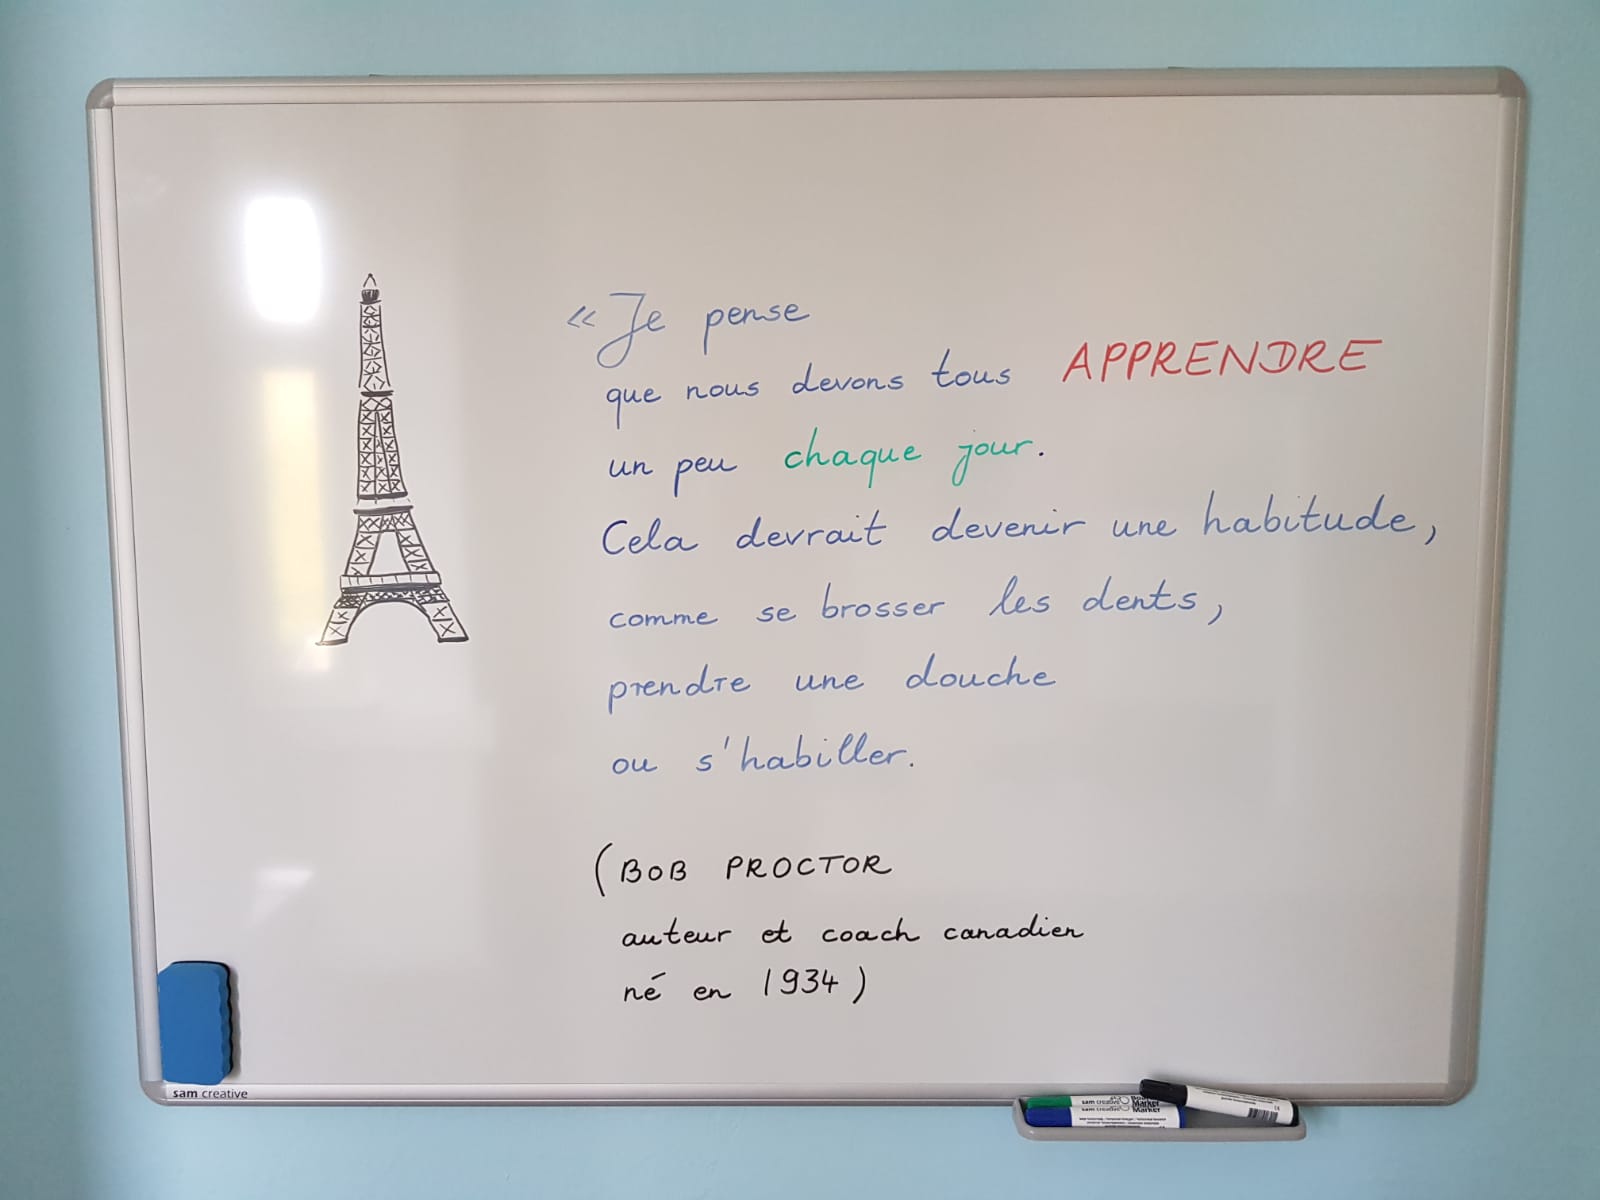 « Je pense
que nous devons tous APPRENDRE
un peu chaque jour.
Cela devrait devenir une habitude,
comme se brosser les dents,
prendre une douche
ou s'habiller.
(BOB PROCTOR
auteur et coach canadien
né en 1934)
sam creative
sam creative Board Marker
sam creative Marker